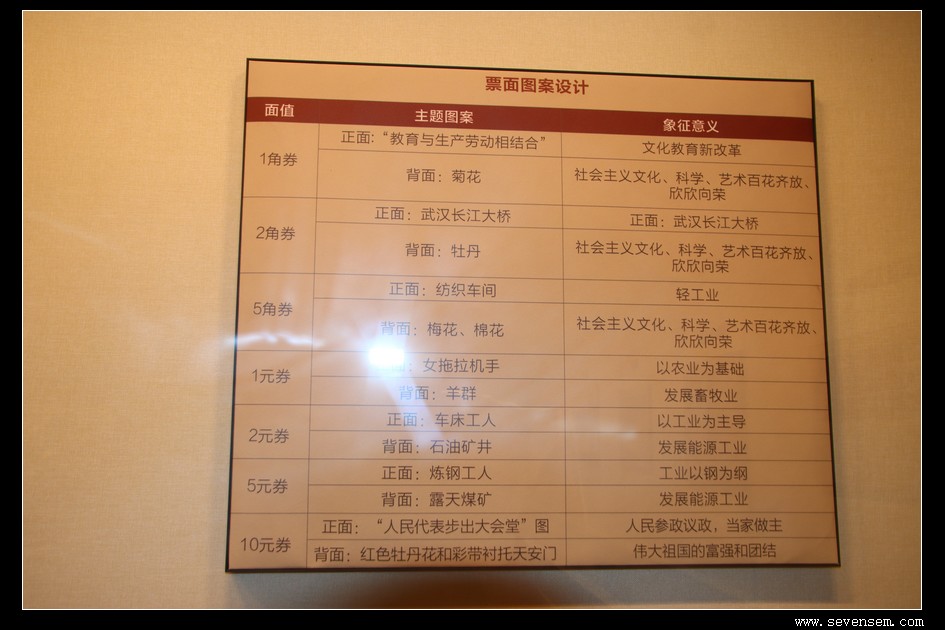 票面图案设计
面值 主题图案 象征意义
1角券 正面：“教育与生产劳动相结合” 文化教育新改革
背面：菊花 社会主义文化、科学、艺术百花齐放、
欣欣向荣
2角券 正面：武汉长江大桥 正面：武汉长江大桥
背面：牡丹 社会主义文化、科学、艺术百花齐放、
欣欣向荣
5角券 正面：纺织车间 轻工业
背面：梅花、棉花 社会主义文化、科学、艺术百花齐放、
欣欣向荣
1元券 ：女拖拉机手 以农业为基础
背面：羊群 发展畜牧业
2元券 正面：车床工人 以工业为主导
背面：石油矿井 发展能源工业
5元券 正面：炼钢工人 工业以钢为纲
背面：露天煤矿 发展能源工业
10元券 正面：“人民代表步出大会堂”图 人民参政议政，当家做主
背面：红色牡丹花和彩带衬托天安门 伟大祖国的富强和团结
www.sevensem.com